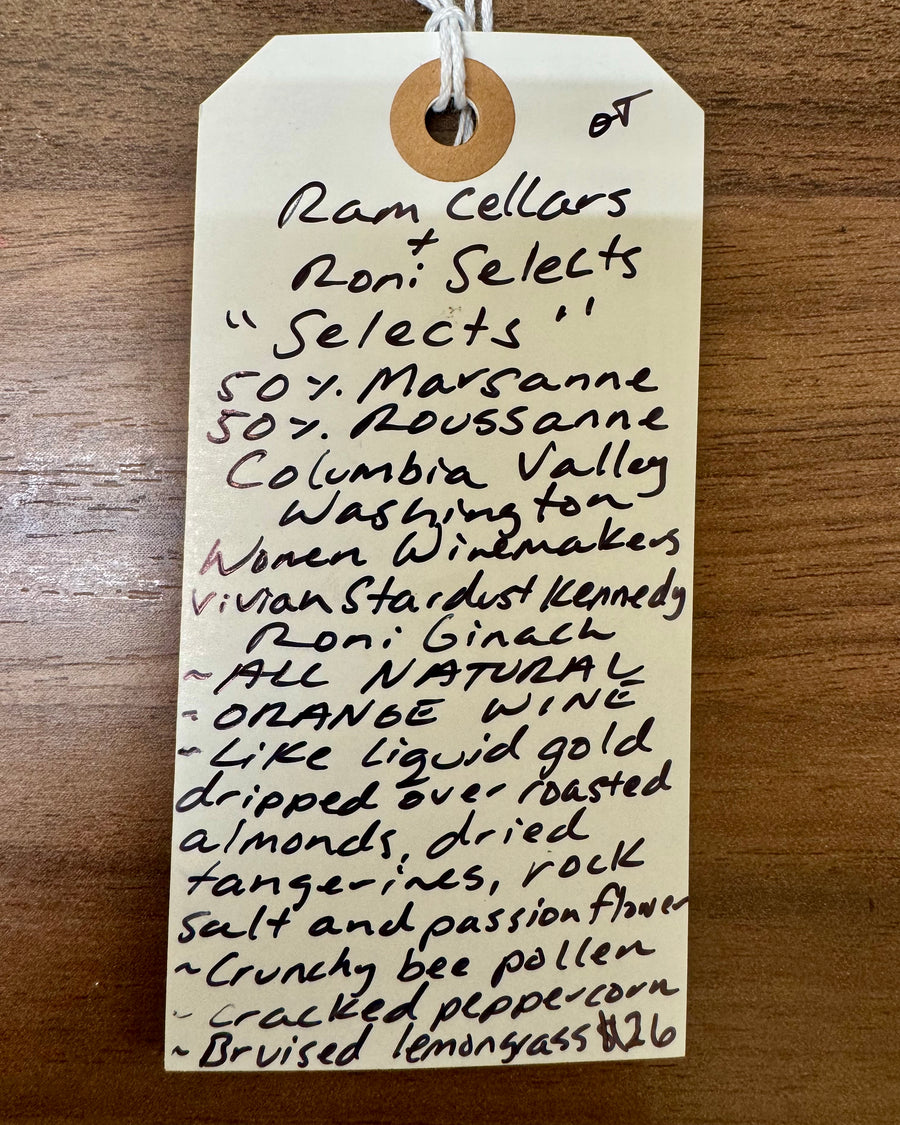 Ram Cellars
+
Roni Selects
"Selects"
50% Marsanne
50% Roussanne
Columbia Valley
Washington
Women Winemakers
Vivian Stardust Kennedy
Roni Ginach
~ALL NATURAL
-ORANGE WINE
~Like liquid gold
dripped over roasted
almonds, dried
tangerines, rock
salt and passionflower
~Crunchy bee pollen
- cracked peppercorn
~ Bruised lemongrass $26